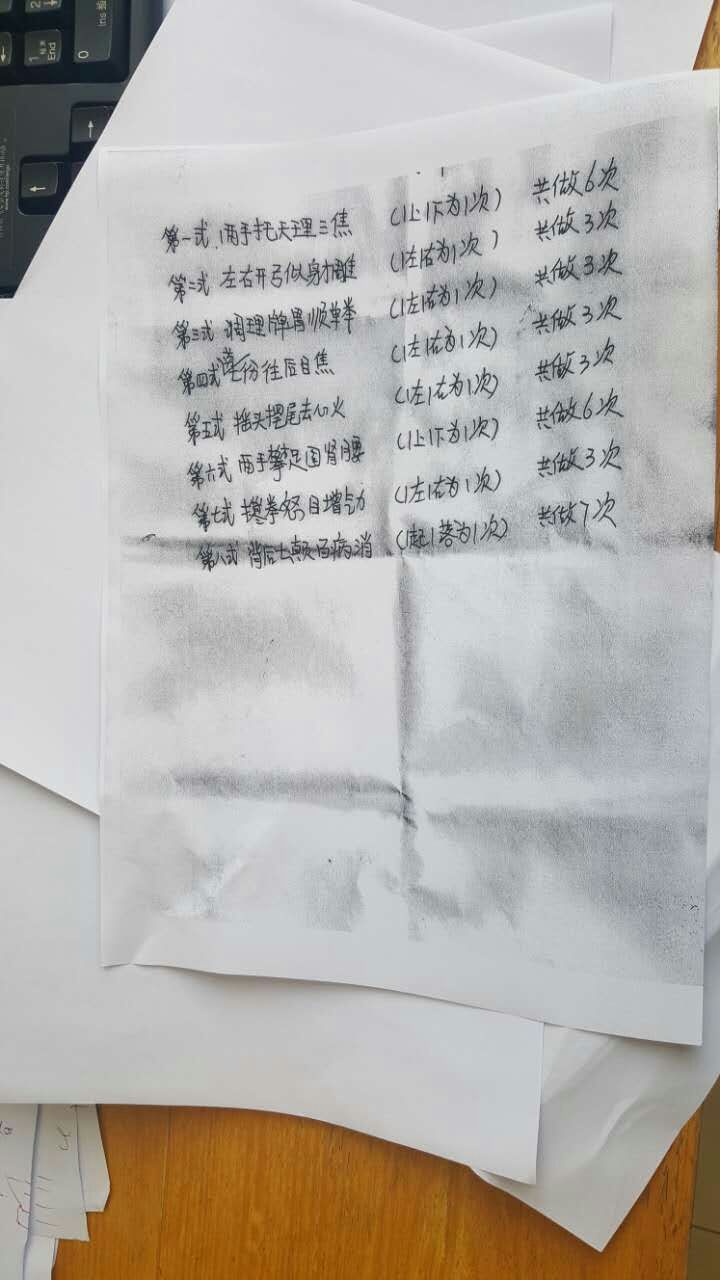 Ins
0
1
End
2
第一式 两手托天理三焦 (1上1下为1次) 共做6次
第二式 左右开弓似身雕 (1左1右为1次) 共做3次
第三式 调理脾胃顺单举 (1左1右为1次) 共做3次
第四式 往后目焦 (1左1右为1次) 共做3次
第五式 摇头摆尾去心火 (1左1右为1次) 共做3次
第六式 两手攀足固肾腰 (1上1下为1次) 共做6次
第七式 拳怒目增气力 (1左1右为1次) 共做3次
第八式 背后七颠百病消 (1起1落为1次) 共做7次